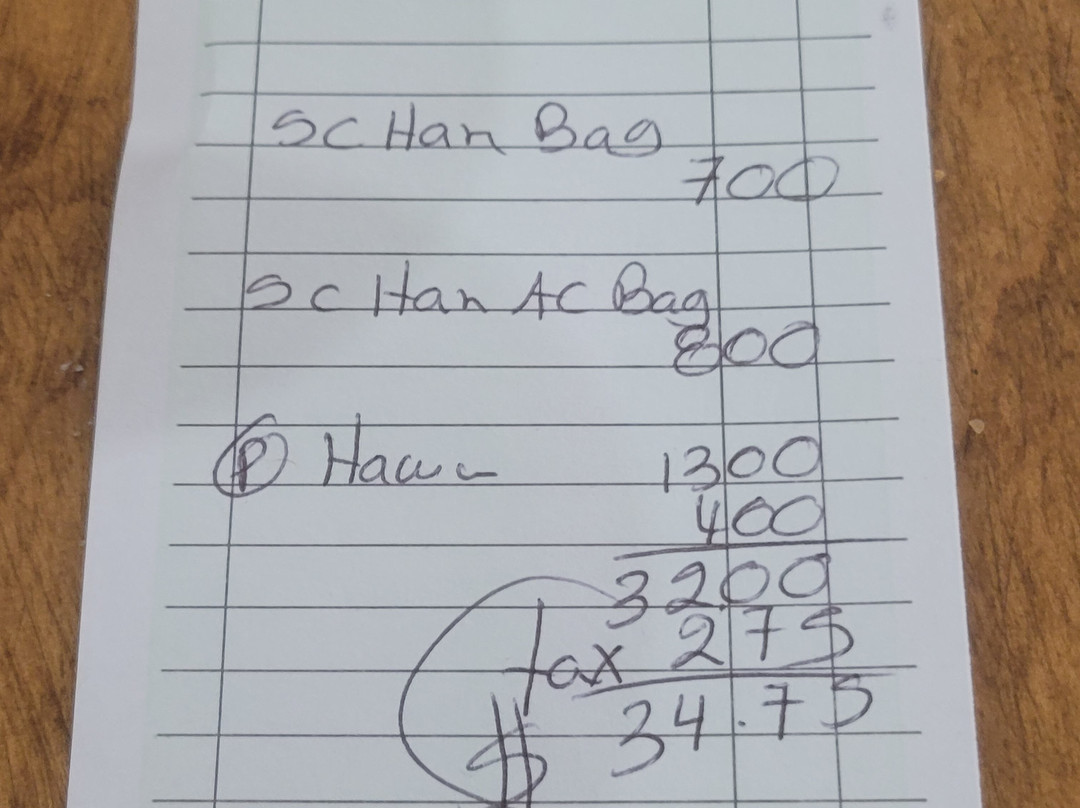 SC Han Bag
700
SC Han AC Bag
800
P Haw 1300
400
3200
tax 275
$ 34.75